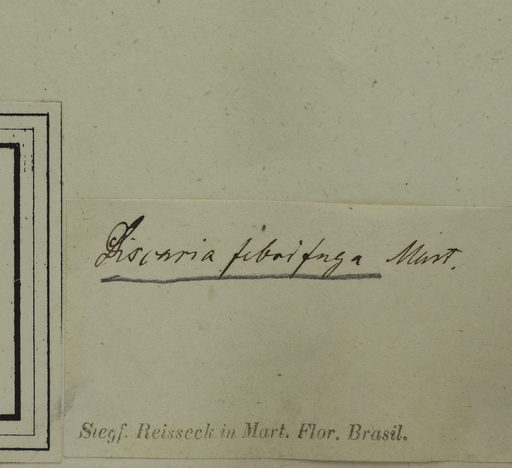 Discaria febrifuga Mart.
Siegf. Reisseck in Mart. Flor. Brasil.